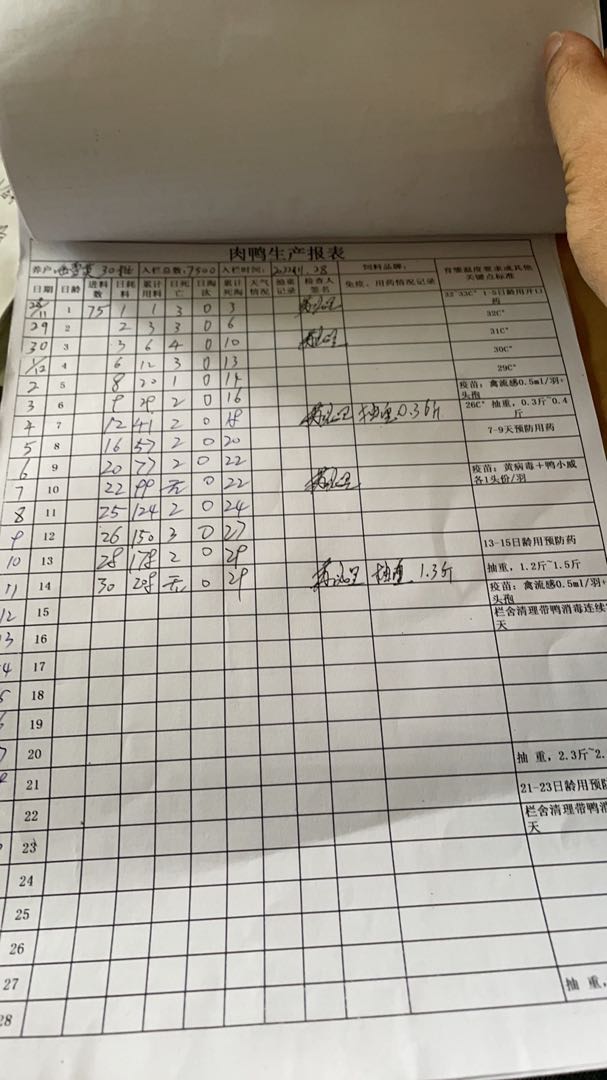 肉鸭生产报表
养户 30批 入栏总数:7500 入栏时间:2022.11.28 饲料品牌: 育雏温度要求或其他关键点标准
日期 日龄 进料数 日耗料 累计用料 日死亡 日淘汰 累计死淘 天气情况 抽重记录 检查人签名 免疫、用药情况记录
28/11 1 75 1 1 3 0 3 32~33C° 1-5日龄用开口药
29 2 2 3 3 0 6 32C°
30 3 3 6 4 0 10 31C°
1/12 4 6 12 3 0 13 30C°
2 5 8 20 1 0 14 29C°
3 6 9 29 2 0 16 疫苗:禽流感0.5ml/羽+头孢
4 7 12 41 2 0 18 抽重0.36斤 26C° 抽重,0.3斤~0.4斤
5 8 16 57 2 0 20 7-9天预防用药
6 9 20 77 2 0 22
7 10 22 99 无 0 22 疫苗:黄病毒+鸭小威各1头份/羽
8 11 25 124 2 0 24
9 12 26 150 3 0 27
10 13 28 178 2 0 29 13-15日龄用预防药
11 14 30 208 无 0 29 抽重 1.3斤 抽重,1.2斤~1.5斤
12 15 疫苗:禽流感0.5ml/羽+头孢
3 16 栏舍清理带鸭消毒连续
天
4 17
5 18
19
20
21 抽重,2.3斤~2.
22 21-23日龄用预防
23 栏舍清理带鸭消
天
24
25
26
27
28 抽重,